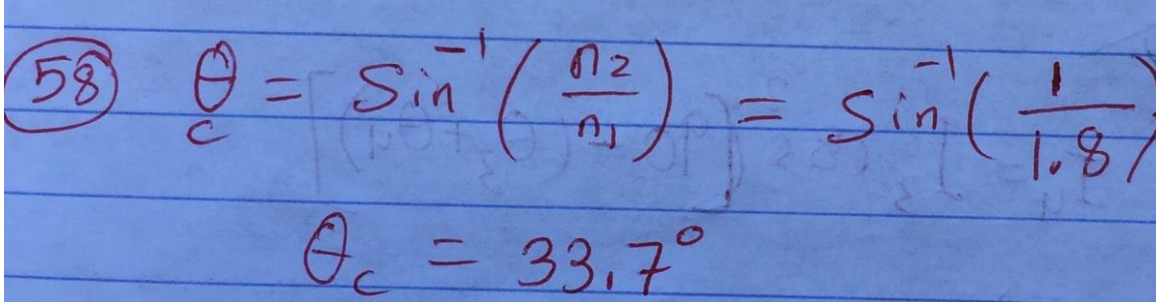 58 θc = Sin⁻¹ (n2/n1) = Sin⁻¹ (1/1.8)
θc = 33.7°